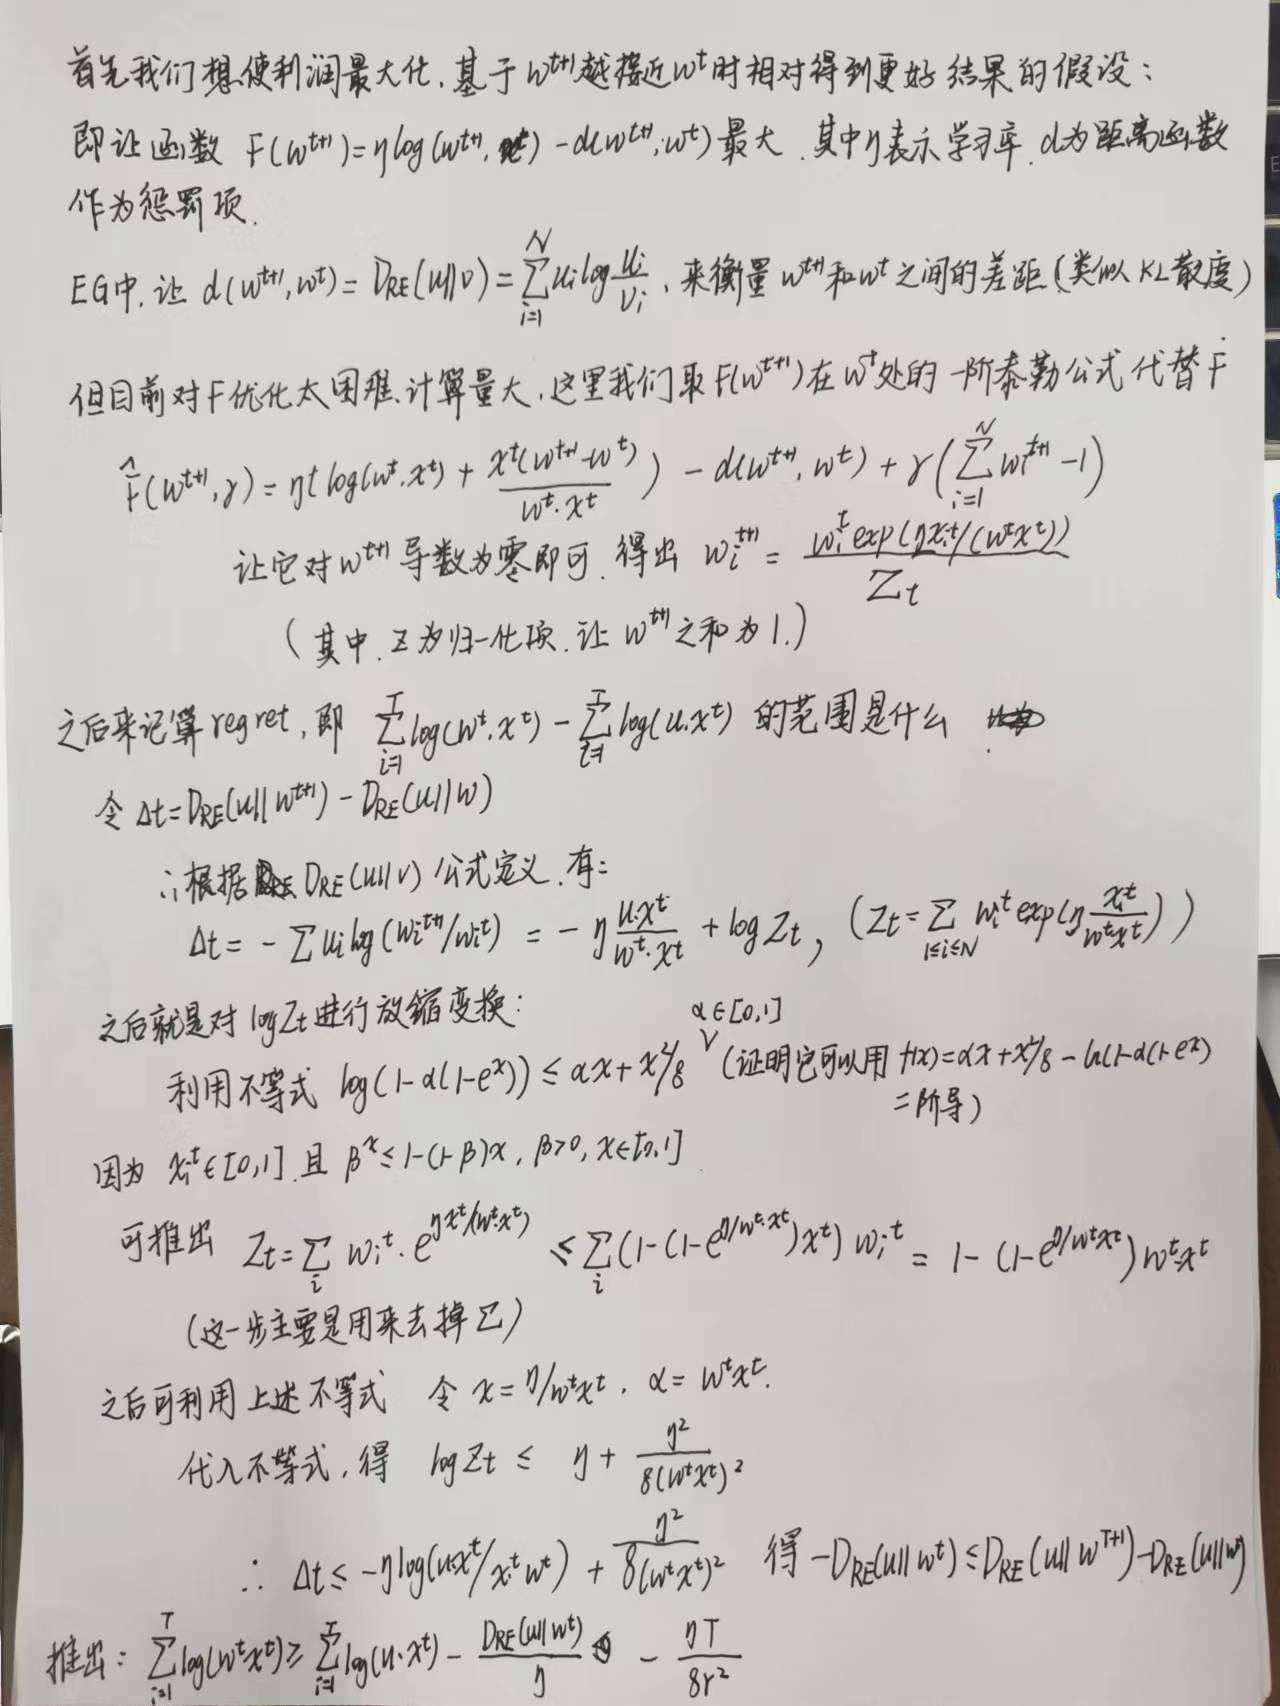 首先我们想使利润最大化,基于 w^{t+1}越接近w^t时相对得到更好结果的假设:
即让函数 F(w^{t+1})=ηlog(w^{t+1}·x^t)-d(w^{t+1},w^t)最大.其中η表示学习率,d为距离函数
作为惩罚项.
EG中,让 d(w^{t+1},w^t)=D_{RE}(u||v)=∑_{i=1}^{N}u_i log u_i/v_i,来衡量 w^{t+1}和w^t之间的差距(类似KL散度)
但目前对F优化太困难、计算量大,这里我们取F(w^{t+1})在w^t处的一阶泰勒公式代替F
F̂(w^{t+1},γ)=η(log(w^t·x^t)+x^t(w^{t+1}-w^t)/(w^t·x^t))-d(w^{t+1},w^t)+γ(∑_{i=1}^{N}w_i^{t+1}-1)
让它对w^{t+1}导数为零即可.得出 w_i^{t+1}=w_i^t exp(ηx_i^t/(w^tx^t))/Z_t
(其中.Z为归一化项.让w^{t+1}之和为1.)
之后来记算regret,即 ∑_{i=1}^{T}log(w^t·x^t)-∑_{i=1}^{T}log(u·x^t) 的范围是什么
令 Δt=D_{RE}(u||w^{t+1})-D_{RE}(u||w)
∴根据 D_{RE}(u||v)公式定义.有:
Δt=-∑u_i log(w_i^{t+1}/w_i^t)=-η u·x^t/(w^t·x^t)+log Z_t,(Z_t=∑_{1≤i≤N}w_i^t exp(η x_i^t/(w^t·x^t)))
α∈[0,1]
之后就是对 logZt 进行放缩变换:
利用不等式 log(1-α(1-e^x))≤αx+x²/8 (证明它可以用 f(x)=αx+x²/8-ln(1-α(1-e^x)
二阶导)
因为 x_i^t∈[0,1].且 β^x≤1-(1-β)x,β>0,x∈[0,1]
可推出 Z_t=∑_i w_i^t·e^{ηx^t/(w^t·x^t)}≤∑_i(1-(1-e^{η/w^t·x^t})x^t)w_i^t=1-(1-e^{η/w^tx^t})w^t·x^t
(这一步主要是用来去掉∑)
之后可利用上述不等式 令 x=η/w^tx^t,α=w^tx^t.
代入不等式,得 logZt≤η+η²/(8(w^tx^t)²)
∴ Δt≤-ηlog(u·x^t/x^t·w^t)+η²/(8(w^tx^t)²) 得-D_{RE}(u||w^t)≤D_{RE}(u||w^{T+1})-D_{RE}(u||w^t)
推出:∑_{i=1}^{T}log(w^tx^t)≥∑_{i=1}^{T}log(u·x^t)-D_{RE}(u||w^t)/η-ηT/(8r²)